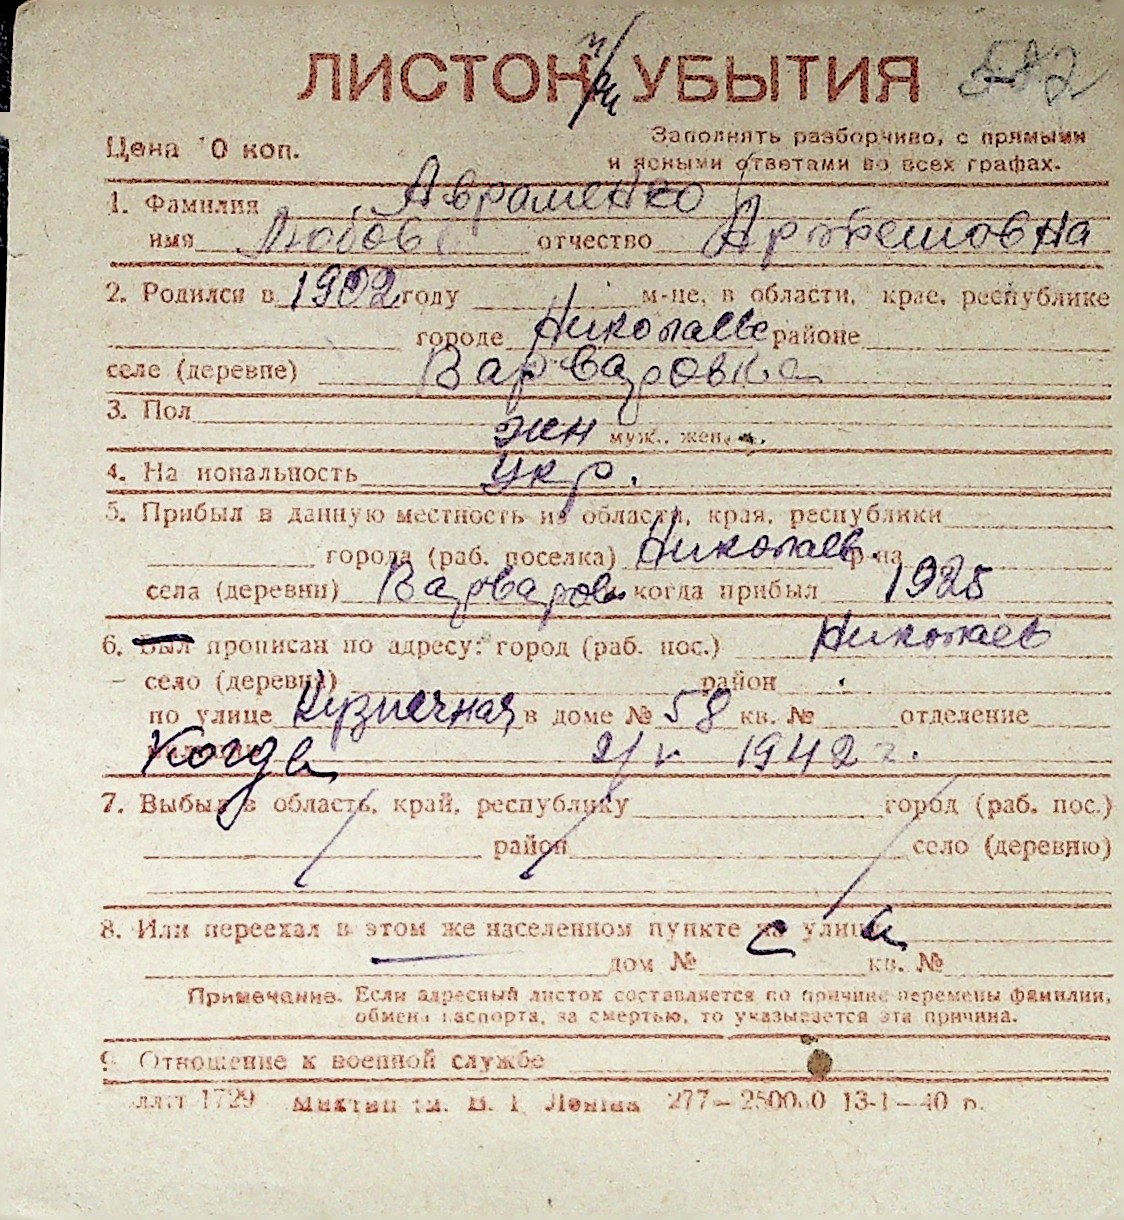 ЛИСТОК УБЫТИЯ
Цена 10 коп.
Заполнять разборчиво, с прямыми
и ясными ответами во всех графах.
1. Фамилия Авраменко
имя Любовь отчество Артемовна
2. Родился в 1902 году м-це, в области, крае, республике
городе Николаеве районе
селе (деревне) Варваровка
3. Пол
жен муж., жен.
4. Национальность укр.
5. Прибыл в данную местность из области, края, республики
города (раб. поселка) Николаев. р-на
села (деревни) Варваров когда прибыл 1925
6. Был прописан по адресу: город (раб. пос.) Николаев
село (деревня) район
по улице Кузнечная в доме № 58 кв. № отделение
Когда 1942 г.
7. Выбыл в область, край, республику город (раб. пос.)
район село (деревню)
8. Или переехал в этом же населенном пункте с улицы
дом № кв. №
Примечание. Если адресный листок составляется по причине перемены фамилии,
обмена паспорта, за смертью, то указывается эта причина.
9. Отношение к военной службе
1729 им. В. І. Леніна 13-1—40 р.